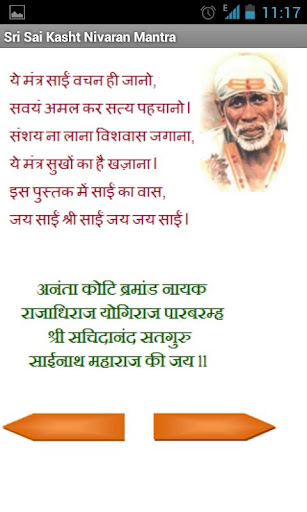 11:17
Sri Sai Kasht Nivaran Mantra
ये मंत्र साईं वचन ही जानो,
सवयं अमल कर सत्य पहचानो।
संशय ना लाना विशवास जगाना,
ये मंत्र सुखों का है खज़ाना।
इस पुस्तक में साईं का वास,
जय साईं श्री साईं जय जय साईं।
अनंता कोटि ब्रमांड नायक
राजाधिराज योगिराज पारबरम्ह
श्री सचिदानंद सतगुरु
साईनाथ महाराज की जय ll